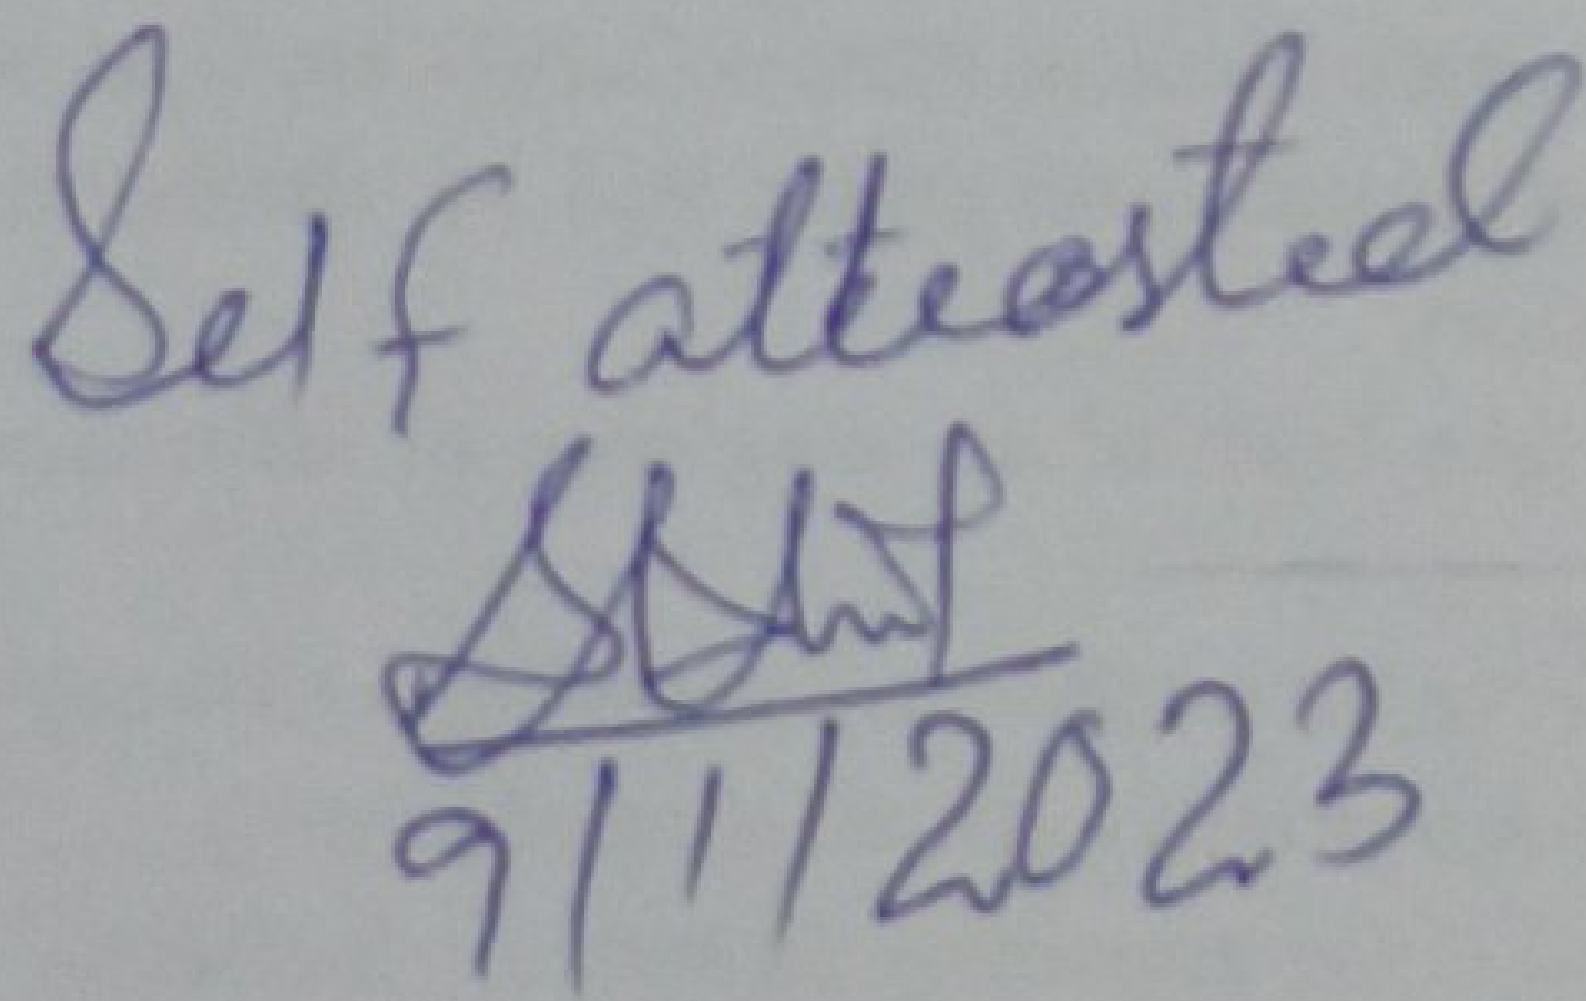 Self attested
9/1/2023